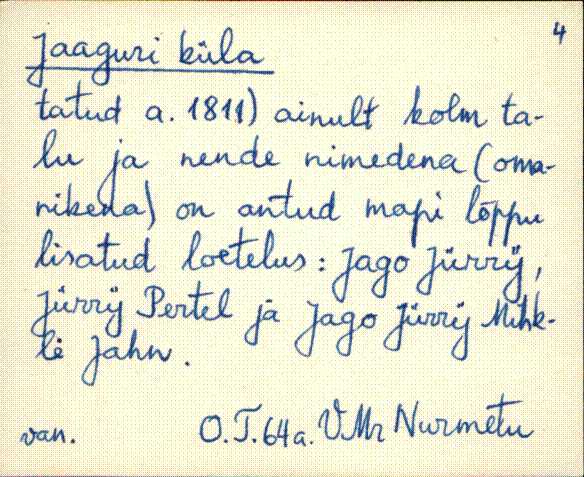 4
Jaaguri küla
tatud a. 1811) ainult kolm ta-
lu ja nende nimedena (oma-
nikena) on antud mapi lõppu
lisatud loetelus: Jago Jürrÿ,
Jürrÿ Pertel ja Jago Jürrÿ Mihk-
le Jahn.
van. O.T. 64a. VMr Nurmetu